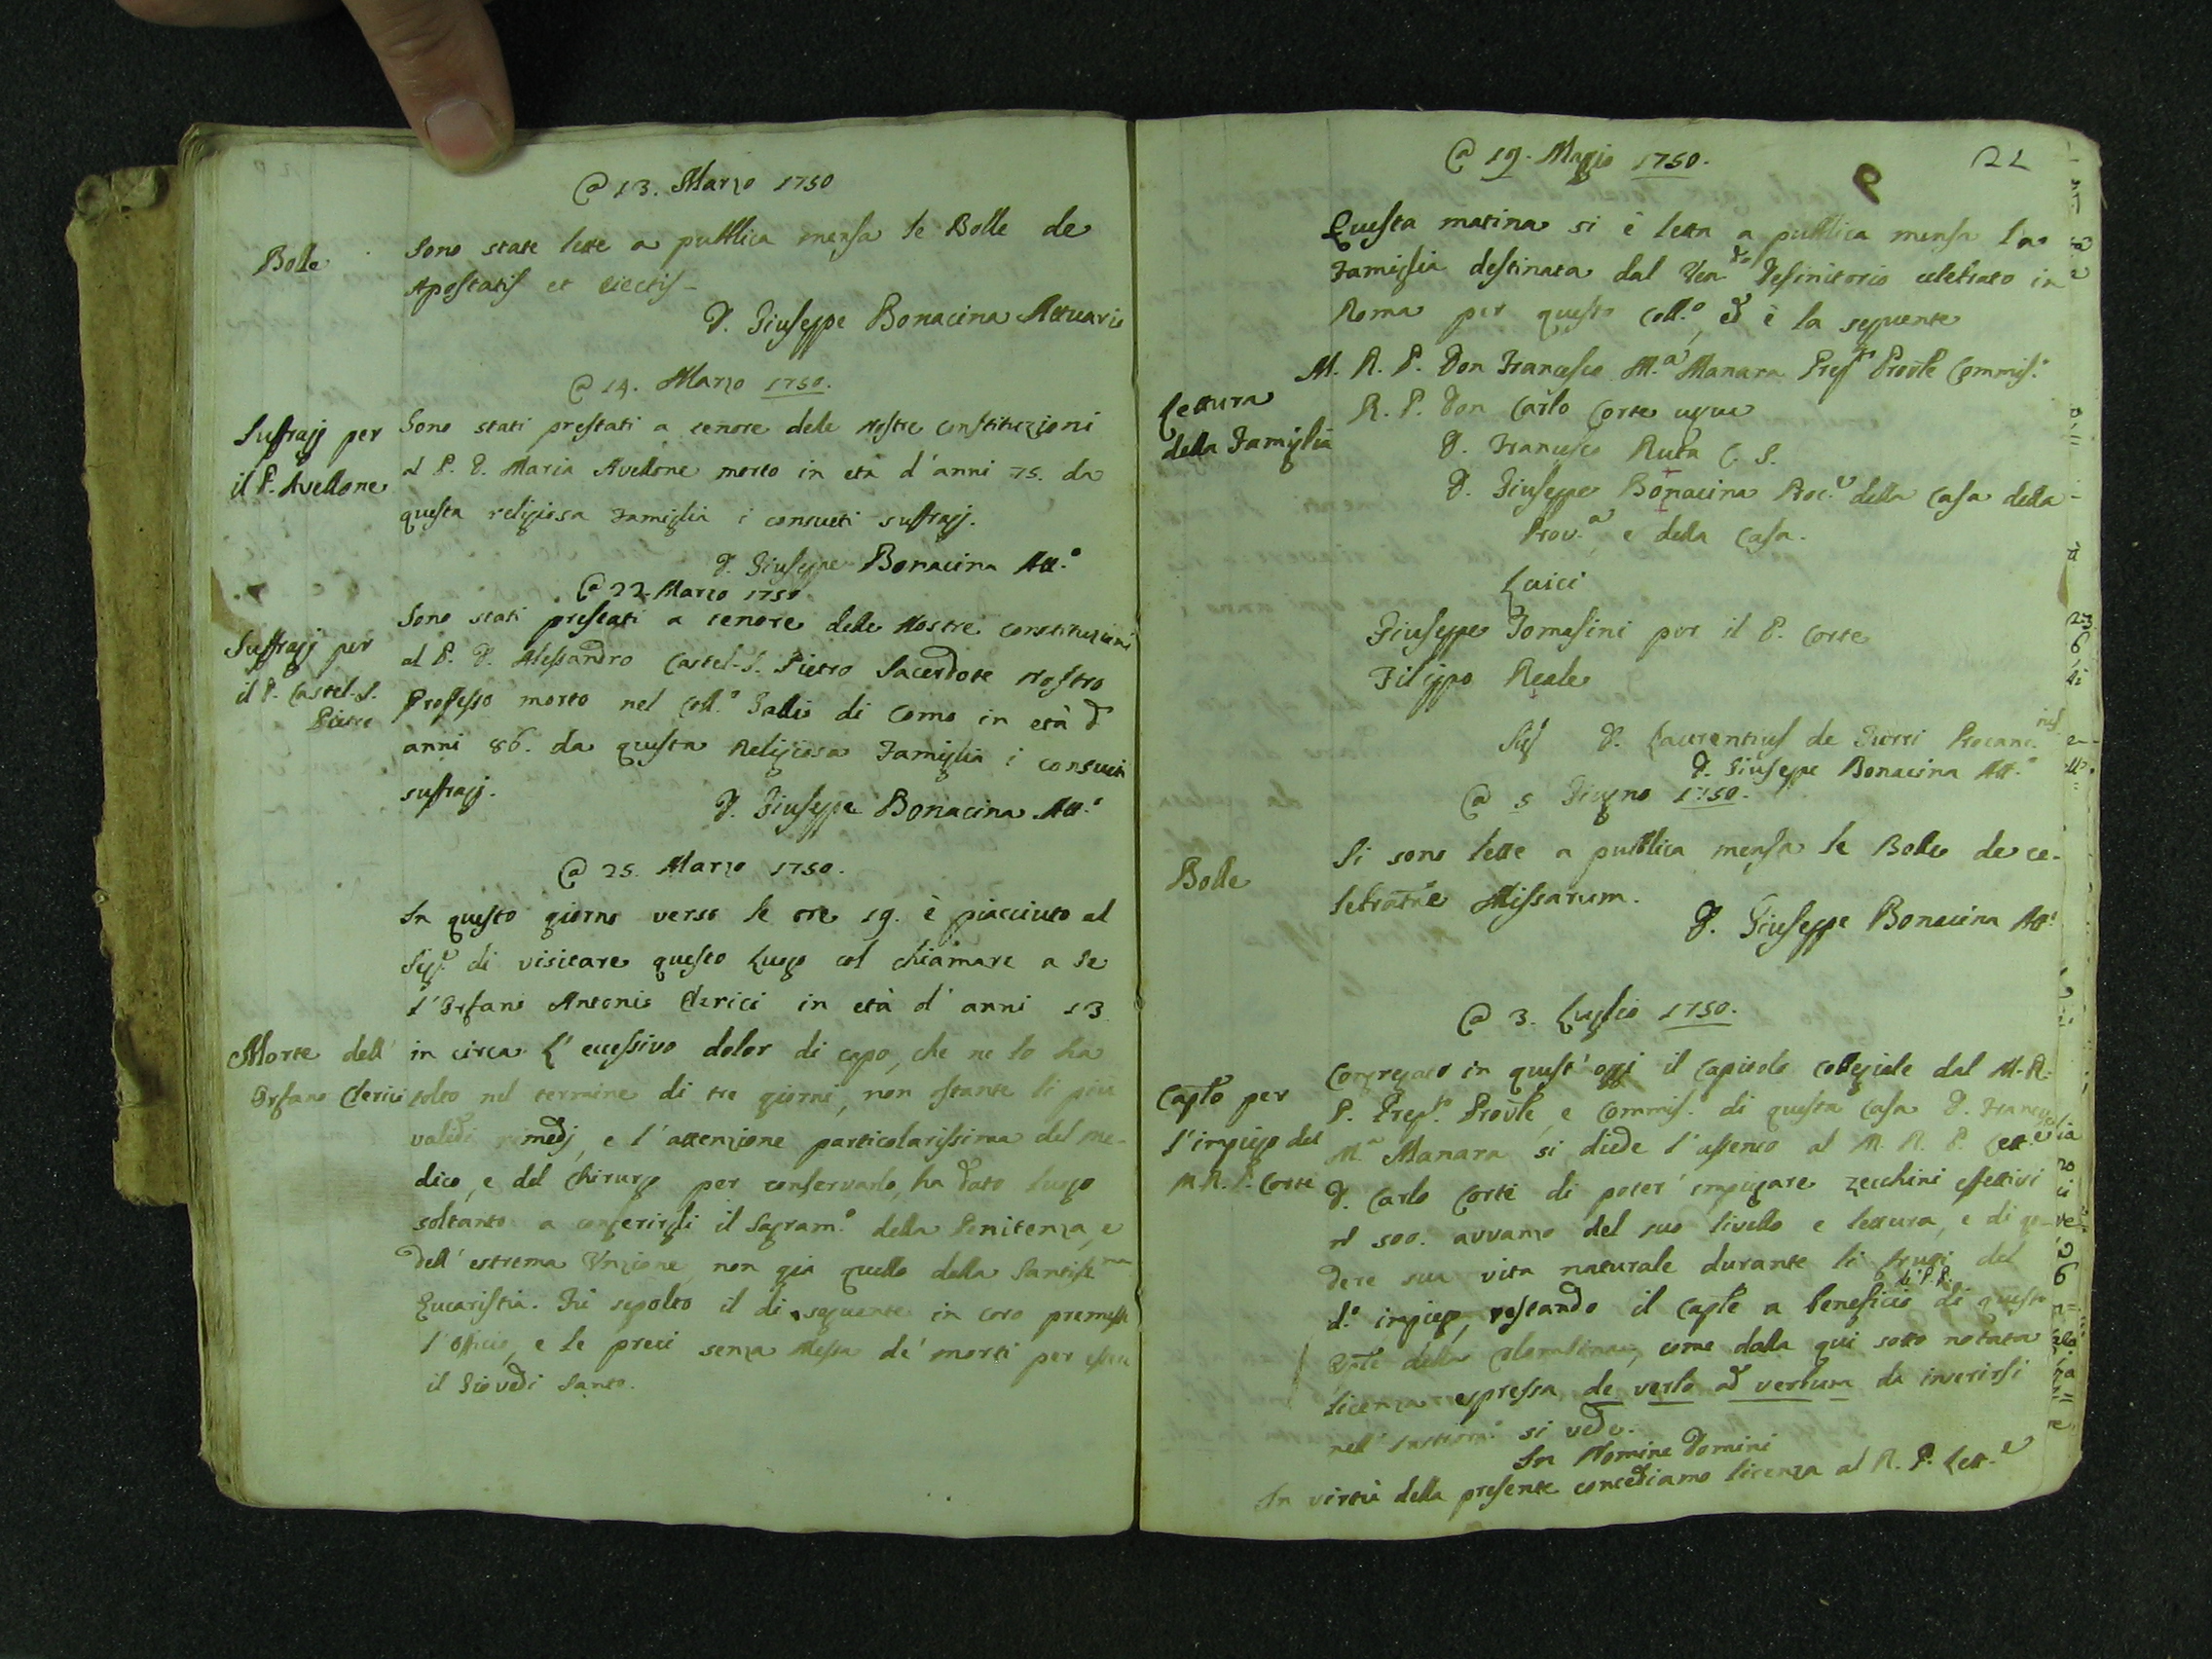 @ 13. Marzo 1750
Bolle
Sono state lette a pubblica mensa le Bolle de
Apostatis et eiectis-
D. Giuseppe Bonacina Attuario
@ 14. Marzo 1750.
Suffragj per
il P. Avellone
Sono stati prestati a tenore dele nostre constituzioni
al P. D. Maria Avellone morto in età d'anni 75. da
questa religiosa Famiglia i consueti suffragj.
D. Giuseppe Bonacina Att.º
@ 22. Marzo 1750
Suffragj per
il P. Castel-S.
Pietro
Sono stati prestati a tenore delle Nostre constituzioni
al P. D. Alessandro Castel-S. Pietro Sacerdote Nostro
Professo morto nel Coll.º Gallio di Como in età d
anni 86. da questa Religiosa Famiglia i consueti
suffragj.
D. Giuseppe Bonacina Att.º
@ 25. Marzo 1750.
In questo giorno verso le ore 19. è piacciuto al
Sig.r di visitare questo Luogo col chiamare a Se
l'Orfano Antonio Clerici in età d'anni 13
Morte dell'
Orfano Clerici
in circa. L'eccessivo dolor di capo, che ne lo ha
tolto nel termine di tre giorni, non ostante li più
validi rimedj, e l'attenzione particolarissima del me-
dico, e del Chirurgo per conservarlo, ha dato luogo
soltanto a conferirgli il Sagram.º della Penitenza, e
dell'estrema Unzione, non già quello della Santiss.ma
Eucaristia. Fù sepolto il di seguente in coro premesse
l'Officio, e le preci senza Messa de' morti per essere
il Giovedi Santo.
@ 19. Magio 1750.
21
Questa matina si è letta a publica mensa la
Famiglia destinata dal Ven.do Definitorio celebrato in
Roma per questo Coll.º, ed è la seguente
Lettura
della Famiglia
M. R. P. Don Francesco M.a Manara Prep.to Provle Commis.º
R. P. Don Carlo Corte
D. Francesco Ruta C. S.
D. Giuseppe Bonacina Proc.e della Casa della
Prov.a, e della Casa.
Laici
Giuseppe Tomasini per il P. Corte
Filippo Reale
D. Laurentius de
D. Giuseppe Bonacina Att.º
@ 5 Giugno 1750.
Bolle
Si sono lette a pubblica mensa le Bolle de ce-
lebratne Missarum.
D. Giuseppe Bonacina Att.º
@ 3. Luglio 1750.
Capto per
l'impiego del
M. R. P. Corte
Congregato in quest'oggi il capitolo collegiale dal M. R.
P. Prep.to Provle, e Commis. di questa Casa D. Franc.co
M.a Manara si diede l'assenso al M. R. P. Lett.e
D. Carlo Corte di poter' impiegare zecchini effettivi
nº 500. avvanzo del suo livello e lettura, e di go-
dere sua vita naturale durante li frutti del
d.º impiego, restando il Caple a beneficio de' P.P. di questo
della Colombina, come dalla qui sotto notata
licenza espressa de verbo ad verbum da inserirsi
nell' si vede.
In Nomine Domini
In virtù della presente concediamo licenza al R. P. Lett.e